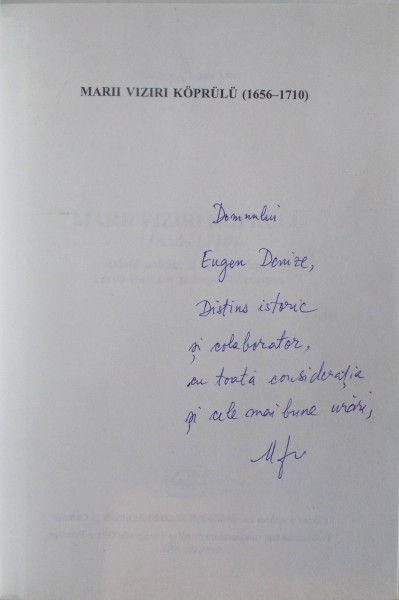 MARII VIZIRI KÖPRÜLÜ (1656–1710)
Domnului
Eugen Denize,
Distins istoric
și colaborator,
cu toată considerația
și cele mai bune urări,